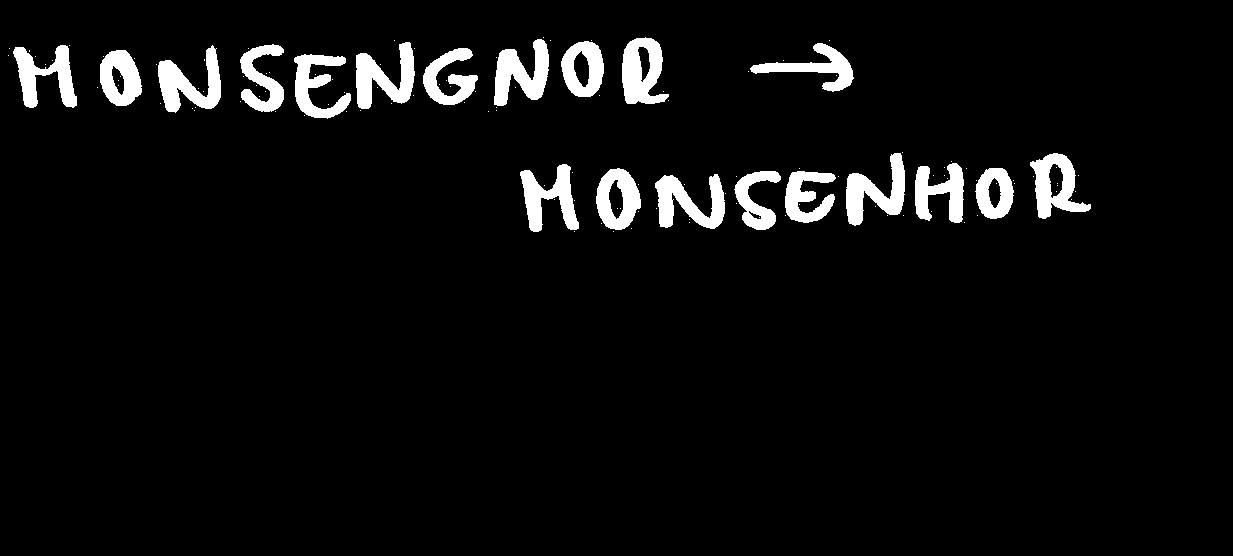 MONSENGNOR →
MONSENHOR